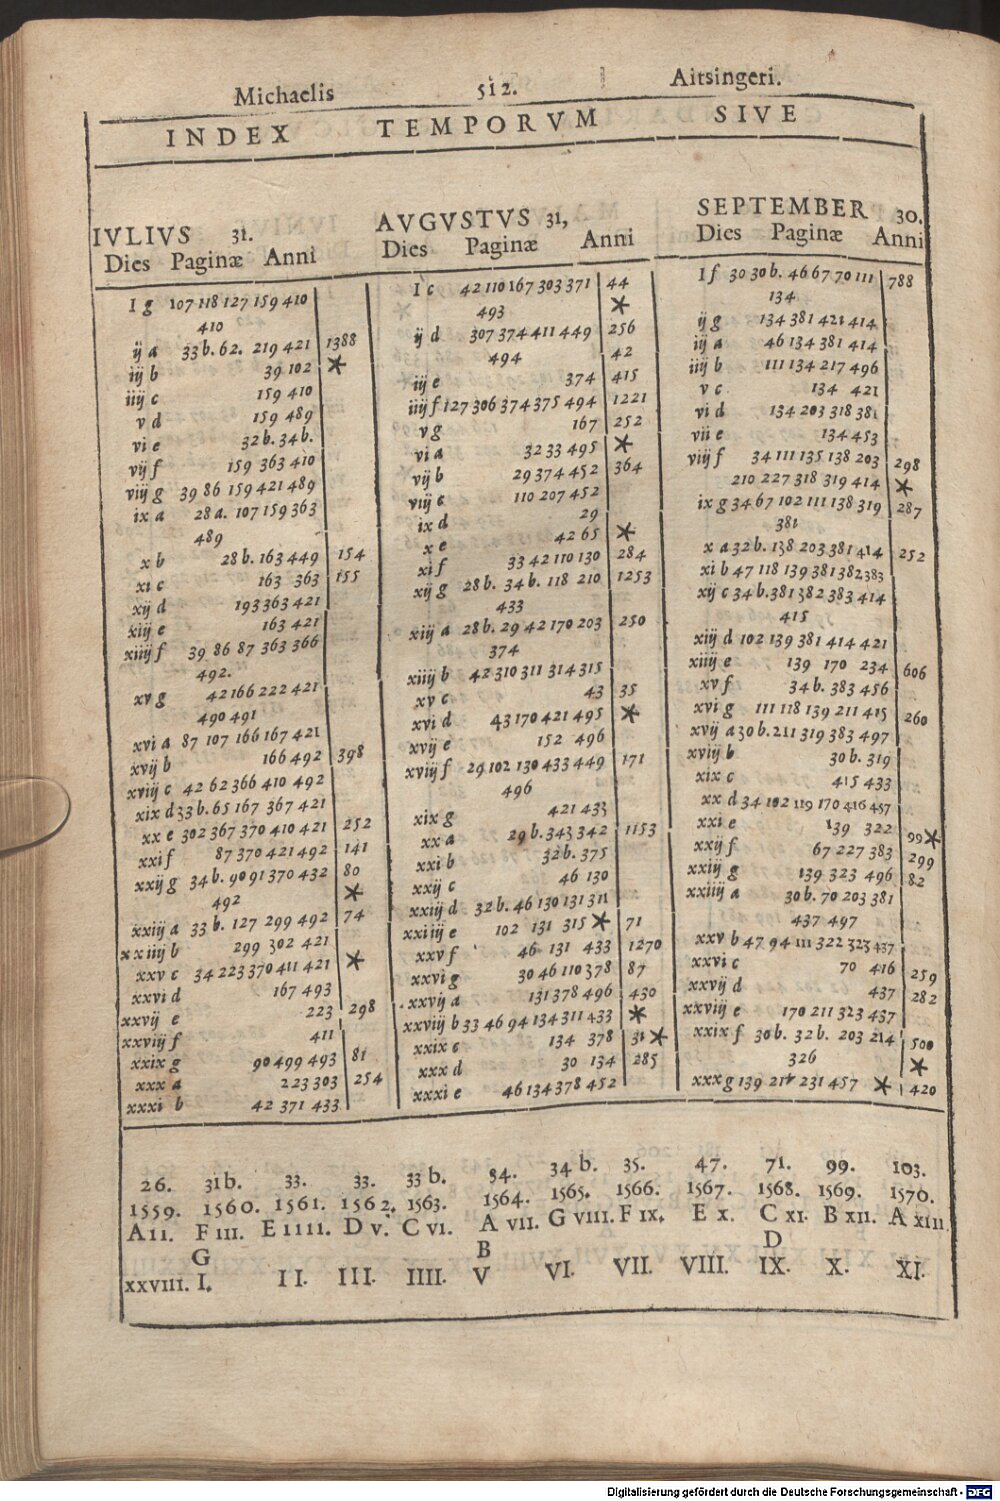 Michaelis 512. Aitsingeri.
INDEX TEMPORVM SIVE
IVLIVS 31.
Dies Paginæ Anni
I g 107 118 127 159 410
410
ij a 33 b. 62. 219 421 1388
iij b 39 102 *
iiij c 159 410
v d 159 489
vi e 32 b. 34 b.
vij f 159 363 410
viij g 39 86 159 421 489
ix a 28 a. 107 159 363
489
x b 28 b. 163 449 154
xi c 163 363 155
xij d 193 363 421
xiij e 163 421
xiiij f 39 86 87 363 366
492.
xv g 42 166 222 421
490 491
xvi a 87 107 166 167 421
xvij b 166 492 398
xviij c 42 62 366 410 492
xix d 33 b. 65 167 367 421
xx e 302 367 370 410 421 252
xxi f 87 370 421 492 141
xxij g 34 b. 90 91 370 432 80
492 *
xxiij a 33 b. 127 299 492 74
xxiiij b 299 302 421
xxv c 34 223 370 411 421 *
xxvi d 167 493
xxvij e 223 298
xxviij f 411
xxix g 90 499 493 81
xxx a 223 303 254
xxxi b 42 371 433
AVGVSTVS 31,
Dies Paginæ Anni
I c 42 110 167 303 371 44
493 *
ij d 307 374 411 449 256
494 42
iij e 374 415
iiij f 127 306 374 375 494 1221
v g 167 252
vi a 32 33 495 *
vij b 29 374 452 364
viij c 110 207 452
ix d 29
x e 42 65 *
xi f 33 42 110 130 284
xij g 28 b. 34 b. 118 210 1253
433
xiij a 28 b. 29 42 170 203 250
374
xiiij b 42 310 311 314 315
xv c 43 35
xvi d 43 170 421 495 *
xvij e 152 496
xviij f 29 102 130 433 449 171
496
xix g 421 433
xx a 29 b. 343 342 1153
xxi b 32 b. 375
xxij c 46 130
xxiij d 32 b. 46 130 131 311
xxiiij e 102 131 315 * 71
xxv f 46 131 433 1270
xxvi g 30 46 110 378 87
xxvij a 131 378 496 430
xxviij b 33 46 94 134 311 433 *
xxix c 134 378 31 *
xxx d 30 134 285
xxxi e 46 134 378 452
SEPTEMBER 30.
Dies Paginæ Anni
I f 30 30 b. 46 67 70 111 788
134
ij g 134 381 421 414
iij a 46 134 381 414
iiij b 111 134 217 496
v c 134 421
vi d 134 203 318 381
vii e 134 453
viij f 34 111 135 138 203 298
210 227 318 319 414 *
ix g 34 67 102 111 138 319 287
381
x a 32 b. 138 203 381 414 252
xi b 47 118 139 381 382 383
xij c 34 b. 381 382 383 414
415
xiij d 102 139 381 414 421
xiiij e 139 170 234 606
xv f 34 b. 383 456
xvi g 111 118 139 211 415 260
xvij a 30 b. 211 319 383 497
xviij b 30 b. 319
xix c 415 433
xx d 34 102 119 170 416 457
xxi e 139 322 99 *
xxij f 67 227 383 299
xxiij g 139 323 496 82
xxiiij a 30 b. 70 203 381
437 497
xxv b 47 94 111 322 323 437
xxvi c 70 416 259
xxvij d 437 282
xxviij e 170 211 323 437
xxix f 30 b. 32 b. 203 214 500
326 *
xxx g 139 231 457 * 420
26. 31 b. 33. 33. 33 b. 34. 34 b. 35. 47. 71. 99. 103.
1559. 1560. 1561. 1562. 1563. 1564. 1565. 1566. 1567. 1568. 1569. 1570.
A II. F III. E IIII. D V. C VI. A VII. G VIII. F IX. E X. C XI. B XII. A XIII.
G B D
XXVIII. I. II. III. IIII. V VI. VII. VIII. IX. X. XI.
Digitalisierung gefördert durch die Deutsche Forschungsgemeinschaft - DFG